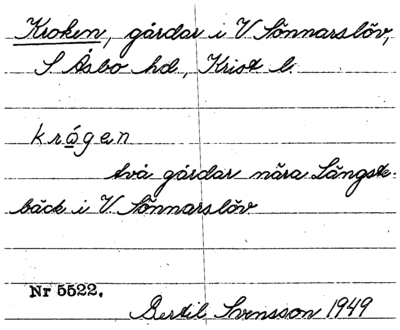 Kroken, gårdar i V Sönnarslöv,
S Åsbo hd, Krist l.
krǫ́gen
två gårdar nära Långste-
bäck i V. Sönnarslöv
Nr 5522.
Bertil Svensson 1949